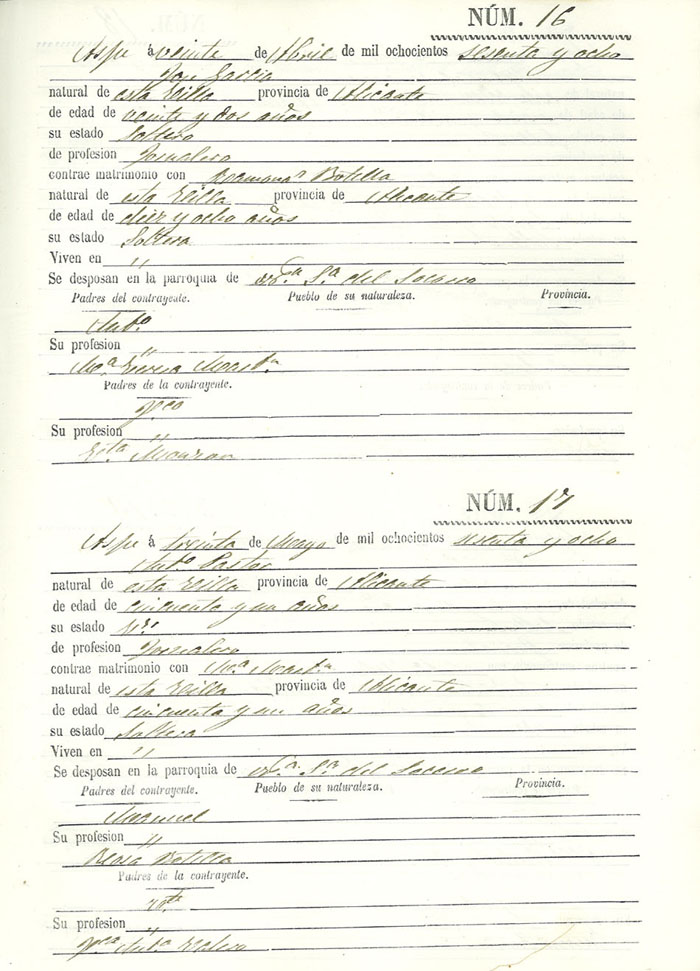 NÚM. 16
Aspe á veinte de Abril de mil ochocientos sesenta y ocho
García
natural de esta Villa provincia de Alicante
de edad de veinte y dos años
su estado Soltero
de profesion Jornalero
contrae matrimonio con Botella
natural de esta Villa provincia de Alicante
de edad de diez y ocho años
su estado Soltera
Viven en "
Se desposan en la parroquia de Sª del Socorro
Padres del contrayente. Pueblo de su naturaleza. Provincia.
Antº
Su profesion "
Mª Martª
Padres de la contrayente.
Su profesion "
NÚM. 17
Aspe á treinta de Mayo de mil ochocientos sesenta y ocho
Antº Pastor
natural de esta Villa provincia de Alicante
de edad de cincuenta y un años
su estado
de profesion Jornalero
contrae matrimonio con Mª Martª
natural de esta Villa provincia de Alicante
de edad de cincuenta y un años
su estado Soltera
Viven en "
Se desposan en la parroquia de Sª del Socorro
Padres del contrayente. Pueblo de su naturaleza. Provincia.
Manuel
Su profesion "
Botella
Padres de la contrayente.
Su profesion "
Antª